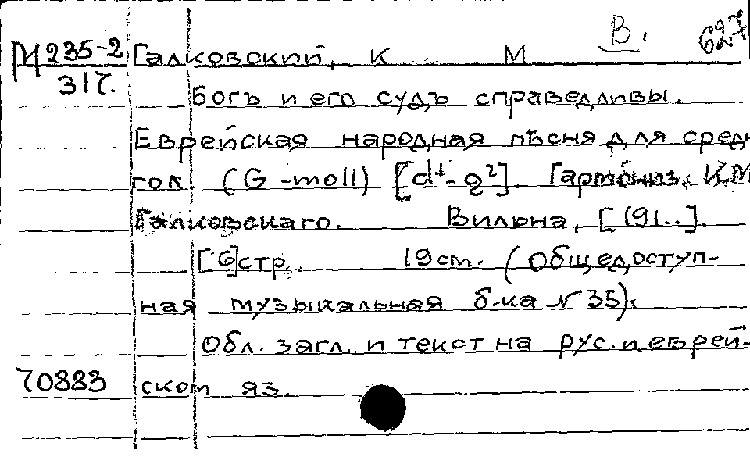 В. 627
М 235-2 Галковский, К М
317.
Богъ и его судъ справедливы.
Еврейская народная пѣсня для сред.
гол. (G-moll) [d¹-g²]. Гармониз. К.М.
Галковскаго. Вильна, [191..].
[6]стр. 19см. (Общедоступ-
ная музыкальная б-ка № 35).
Обл. загл. и текст на рус. и еврей-
70883 ском яз.